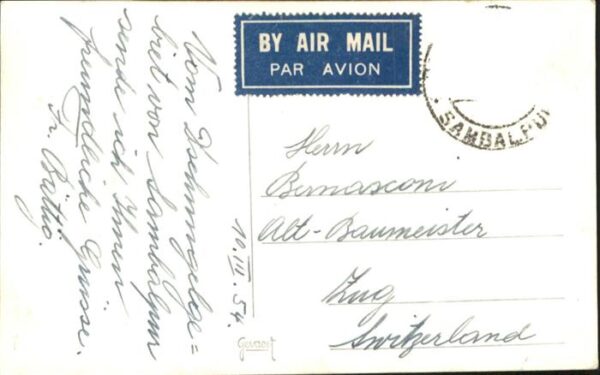 BY AIR MAIL
PAR AVION
SAMBALPU
Vom Dschungelge=
biet von Sambalpur
sende ich Ihnen
freundliche Grüsse.
10.III.54.
Herrn
Bernasconi
Alt-Baumeister
Zug
Switzerland
Gevaert